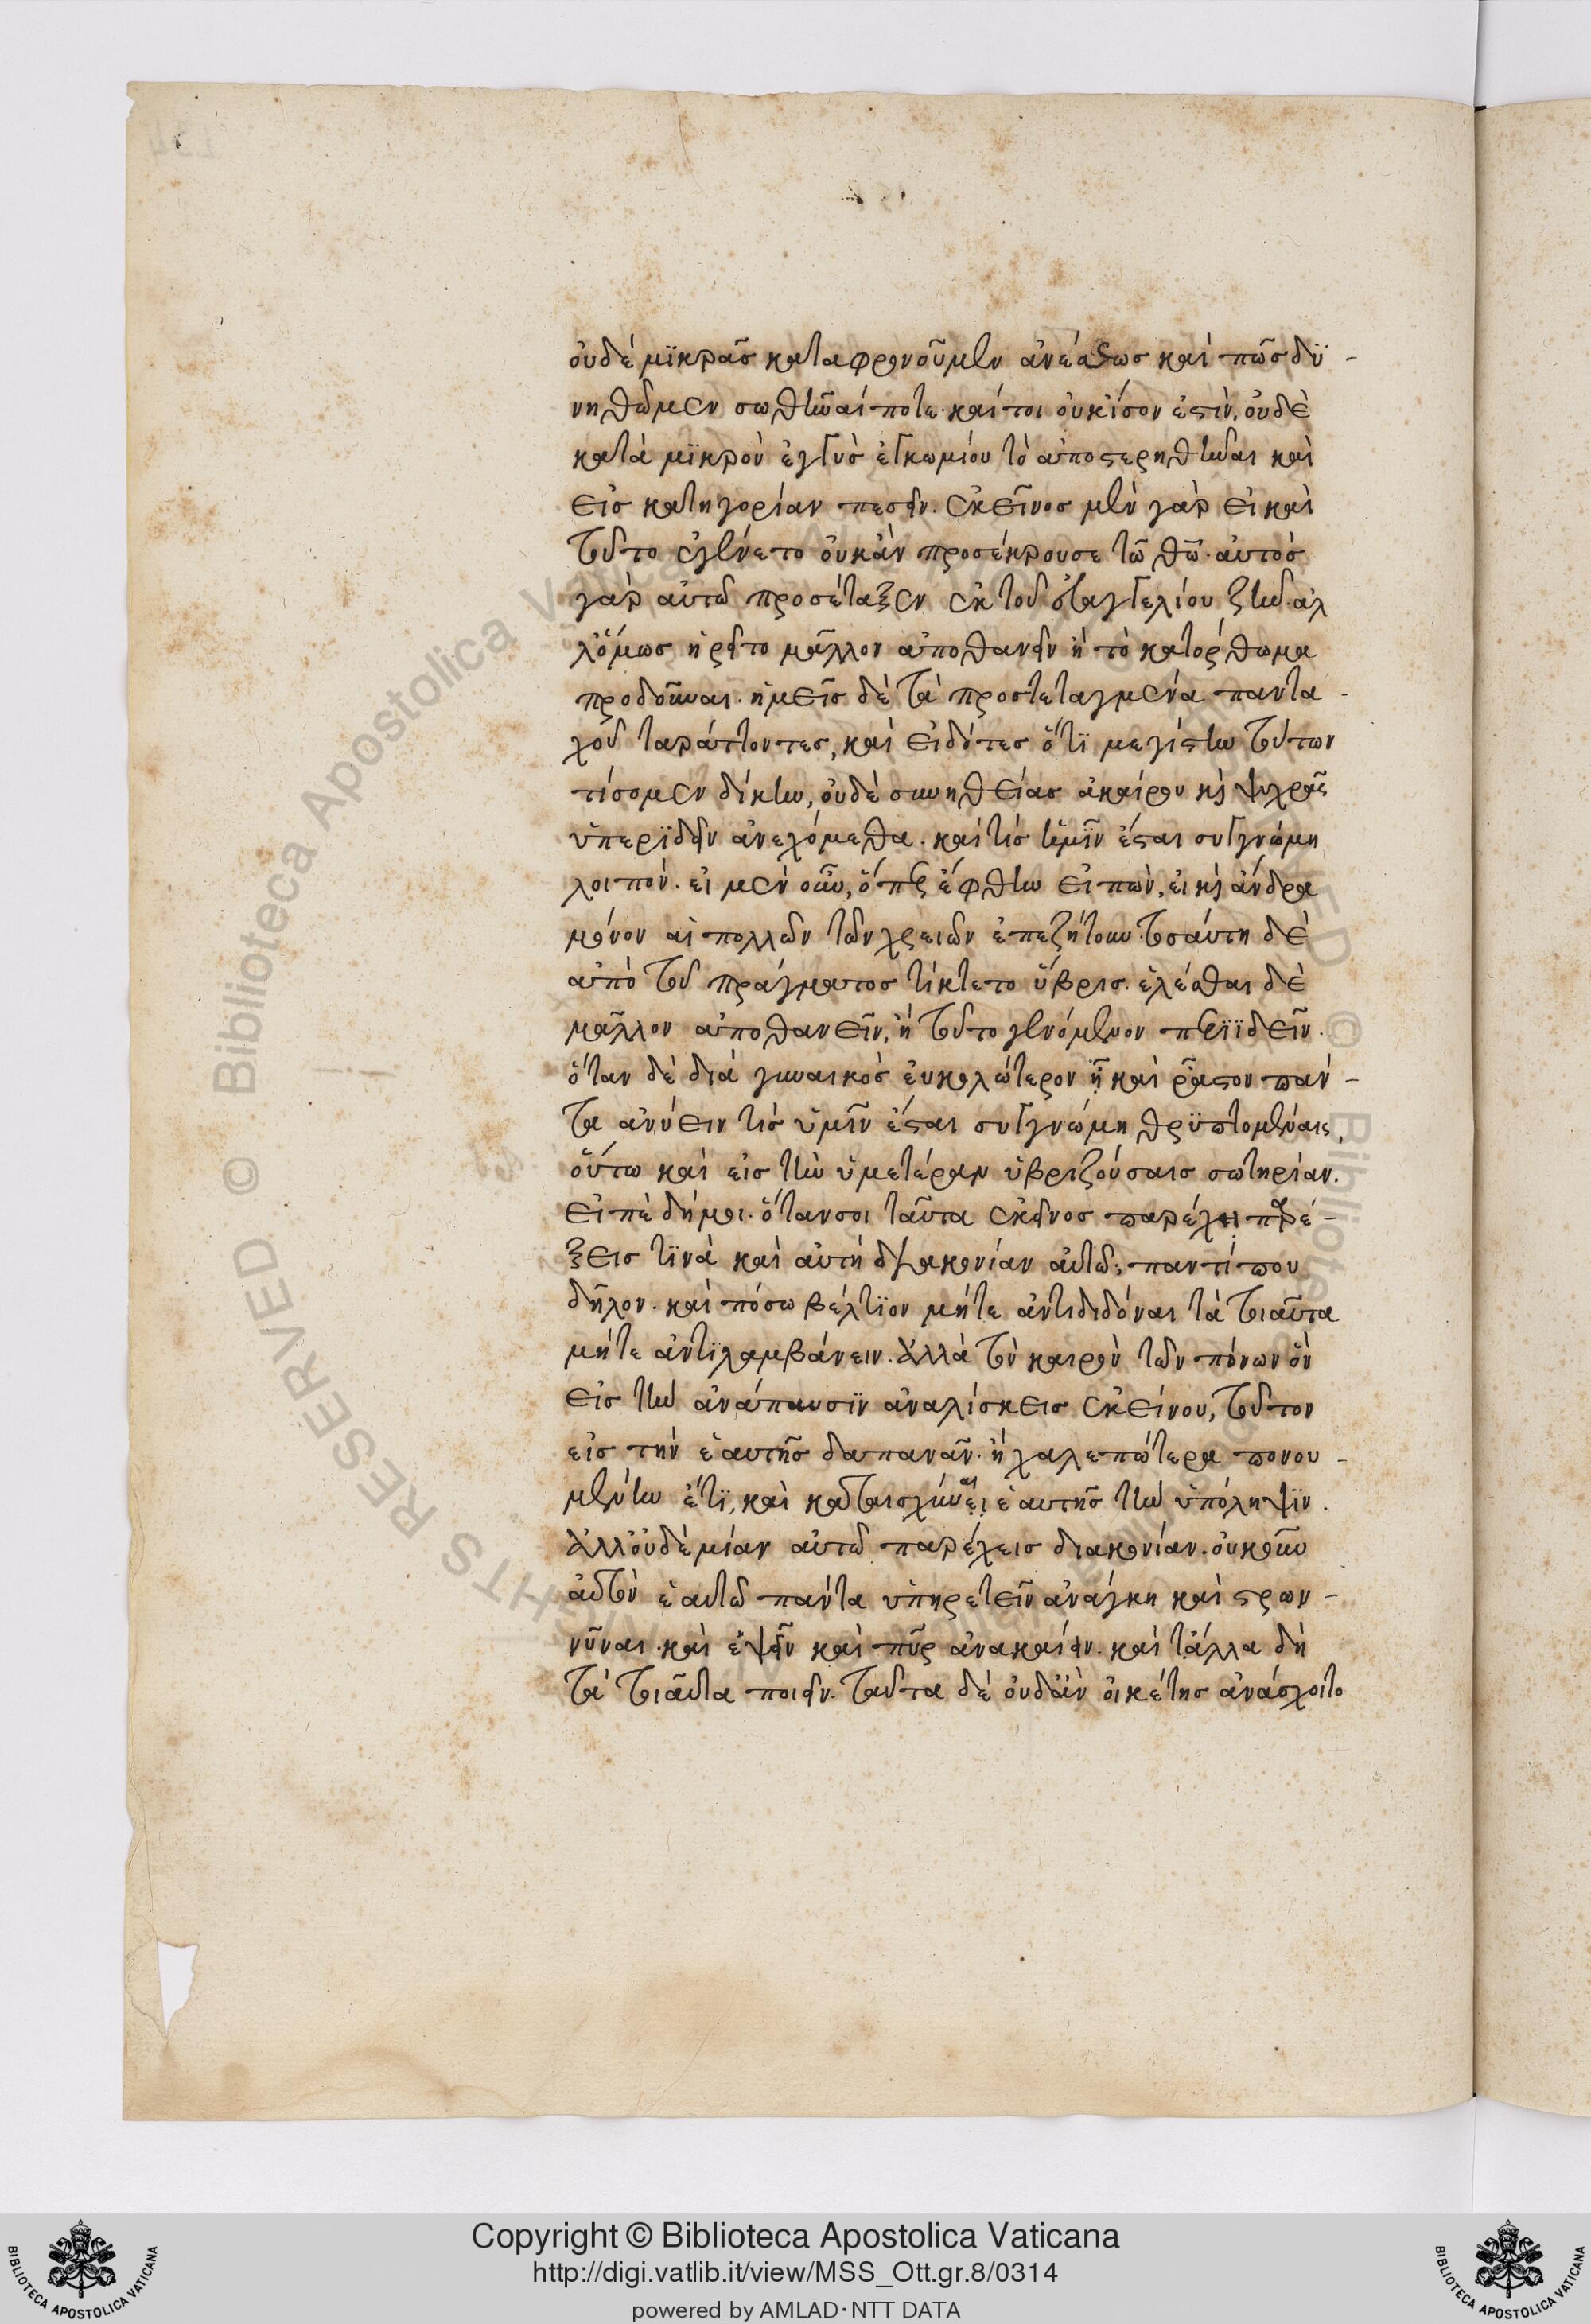 οὐδὲ μϊκρᾶς καταφρονοῦμεν ἀνέσεως καὶ πῶς δυ-
νηθῶμεν σωθῆναί ποτε. καίτοι οὐκ ἴσον ἐστὶν, οὐδὲ
κατὰ μϊκρὸν ἐγγὺς ἐγκωμίου τὸ ἀποστερηθῆναι καὶ
εἰς κατηγορίαν πεσεῖν. ἐκεῖνος μὲν γὰρ εἰ καὶ
τοῦτο ἐγένετο οὐκ ἂν προσέκρουσε τῶ θῶ. αὐτὸς
γὰρ αὐτῶ προσέταξεν ἐκ τοῦ εὐαγγελίου ζῆν. ἀλ
λ' ὅμως ἡρεῖτο μᾶλλον ἀποθανεῖν ἢ τὸ κατόρθωμα
προδοῦναι. ἡμεῖς δὲ τὰ προστεταγμένα παντα-
χοῦ ταράττοντες, καὶ εἰδότες ὅτϊ μεγίστην τούτων
τίσομεν δίκην, οὐδὲ συνηθείας ἀκαίρου καὶ ψυχρᾶς
ὑπερϊδεῖν ἀνεχόμεθα. καὶ τίς ἡμῖν ἔσται συγγνώμη
λοιπόν. εἰ μὲν οὖν, ὅπερ ἔφθην εἰπὼν, εἰ καὶ ἄνδρα
μόνον αἱ πολλῶν τῶν χρειῶν ἐπεζήτουν. τοσαύτη δὲ
ἀπὸ τοῦ πράγματος τίκτετο ὕβρις. ἑλέσθαι δὲ
μᾶλλον ἀποθανεῖν, ἢ τοῦτο γενόμενον περιϊδεῖν.
ὅταν δὲ διὰ γυναικὸς εὐκολώτερον ἦ καὶ ρᾶστον πάν-
τα ἀνύειν τίς ὑμῖν ἔσται συγγνώμη θρϋπτομέναις,
οὕτω καὶ εἰς τὴν ὑμετέραν ὑβριζούσαις σωτηρίαν.
εἰπὲ δή μοι. ὅταν σοι ταῦτα ἐκεῖνος παρέχη παρέ-
ξεις τϊνὰ καὶ αὐτὴ διακονίαν αὐτῶ; παντί που
δῆλον. καὶ πόσω βέλτϊον μήτε ἀντιδιδόναι τὰ τοιαῦτα
μήτε ἀντϊλαμβάνειν. Ἀλλὰ τὸν καιρὸν τῶν πόνων ὃν
εἰς τὴν ἀνάπαυσϊν ἀναλίσκεις ἐκείνου, τοῦτον
εἰς τὴν ἑαυτῆς δαπανᾶν. ἢ χαλεπώτερα πονου-
μένην ἔτϊ, καὶ καταισχύνειν ἑαυτῆς τὴν ὑπόληψϊν.
Ἀλλ' οὐδὲ μίαν αὐτῶ παρέχεις διακονίαν. οὐκοῦν
αὐτὸν ἑαυτῶ πάντα ὑπηρετεῖν ἀνάγκη καὶ στρων-
νῦναι. καὶ ἕψειν καὶ πῦρ ἀνακαίειν. καὶ τἄλλα δὴ
τὰ τοιαῦτα ποιεῖν. ταῦτα δὲ οὐδ' ἂν οἰκέτης ἀνάσχοιτο
Copyright © Biblioteca Apostolica Vaticana
http://digi.vatlib.it/view/MSS_Ott.gr.8/0314
powered by AMLAD·NTT DATA
BIBLIOTECA APOSTOLICA VATICANA
BIBLIOTECA APOSTOLICA VATICANA